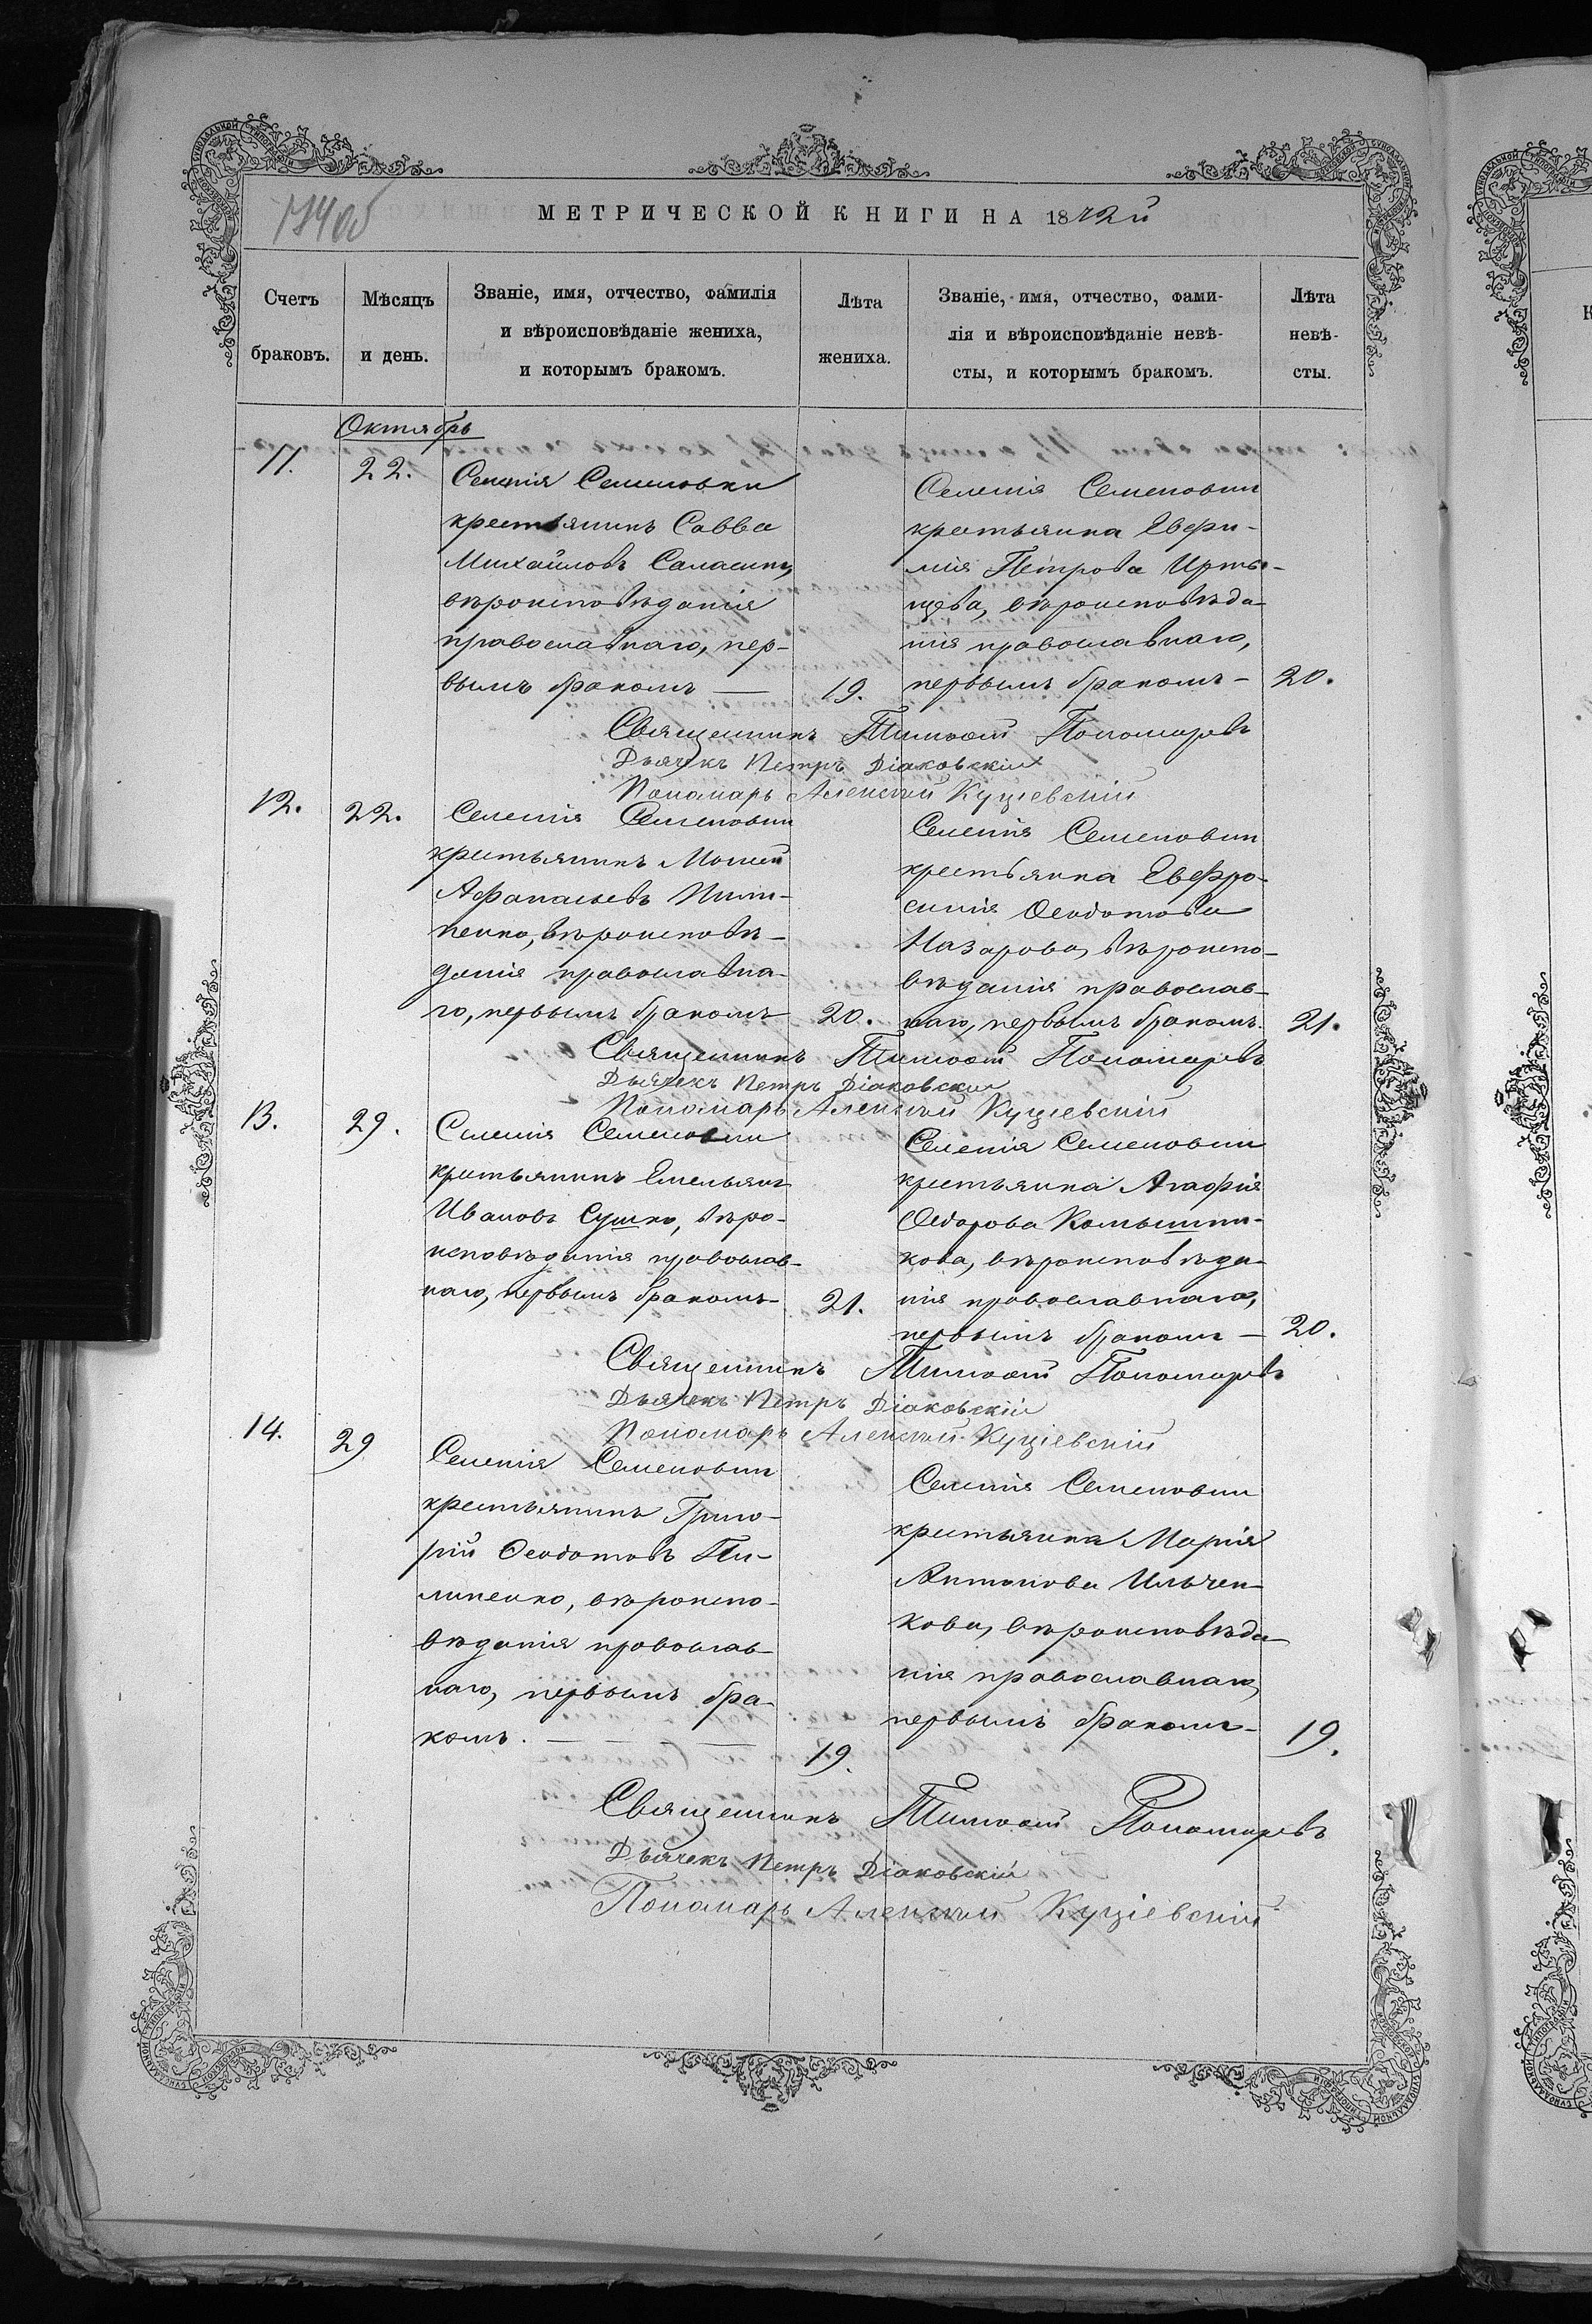 174об
МЕТРИЧЕСКОЙ КНИГИ НА 1872й
Счетъ браковъ.
Мѣсяцъ и день.
Званіе, имя, отчество, фамилія
и вѣроисповѣданіе жениха,
и которымъ бракомъ.
Лѣта жениха.
Званіе, имя, отчество, фами-
лія и вѣроисповѣданіе невѣ-
сты, и которымъ бракомъ.
Лѣта невѣ-
сты.
Октябрь
11.
22.
Селенія Семеновки
крестьянинъ Савва
Михайловъ
вѣроисповѣданія
православнаго, пер-
вымъ бракомъ —
19.
Селенія Семеновки
крестьянка Евфи-
мія Петрова Ирты-
щева, вѣроисповѣда-
нія православнаго,
первымъ бракомъ —
20.
Священникъ Тимоѳей Пономаревъ
Дьячекъ Петръ Діаковскій
Пономарь Алексѣй Куціевскій
12.
22.
Селенія Семеновки
крестьянинъ Моисей
Афанасьевъ Пили-
пенко, вѣроисповѣ-
данія православна-
го, первымъ бракомъ
20.
Селенія Семеновки
крестьянка Евфро-
синія Ѳеодотова
Назарова, вѣроиспо-
вѣданія православ-
наго, первымъ бракомъ.
21.
Священникъ Тимоѳей Пономаревъ
Дьячекъ Петръ Діаковскій
Пономарь Алексѣй Куціевскій
13.
29.
Селенія Семеновки
крестьянинъ Емельянъ
Ивановъ Сушко, вѣро-
исповѣданія православ-
наго, первымъ бракомъ —
21.
Селенія Семеновки
крестьянка Агафія
Ѳедорова Камышни-
кова, вѣроисповѣда-
нія православнаго,
первымъ бракомъ —
20.
Священникъ Тимоѳей Пономаревъ
Дьячекъ Петръ Діаковскій
Пономарь Алексѣй Куціевскій
14.
29
Селенія Семеновки
крестьянинъ Григо-
рій Ѳеодотовъ Пи-
липенко, вѣроиспо-
вѣданія православ-
наго, первымъ бра-
комъ. — — —
19.
Селенія Семеновки
крестьянка Марія
Антонова Ильчен-
кова, вѣроисповѣда-
нія православнаго,
первымъ бракомъ —
19.
Священникъ Тимоѳей Пономаревъ
Дьячекъ Петръ Діаковскій
Пономарь Алексѣй Куціевскій